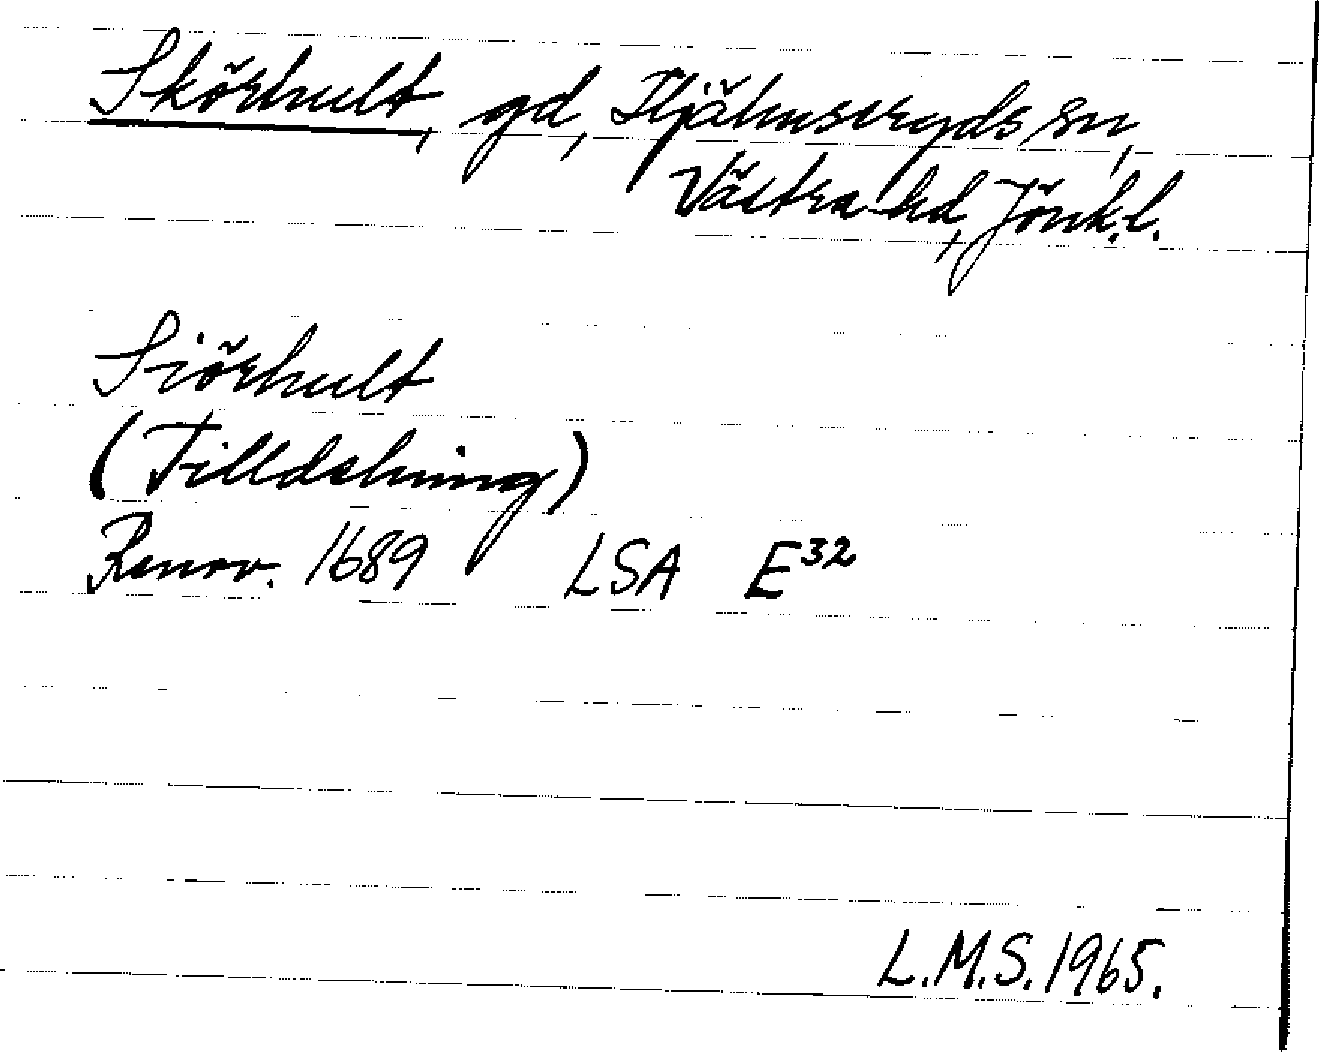 Skörhult, gd, Hjälmseryds sn,
Västra hd, Jönk.l.
Siörhult
(Filldelning)
Renov. 1689 LSA E³²
L.M.S. 1965.